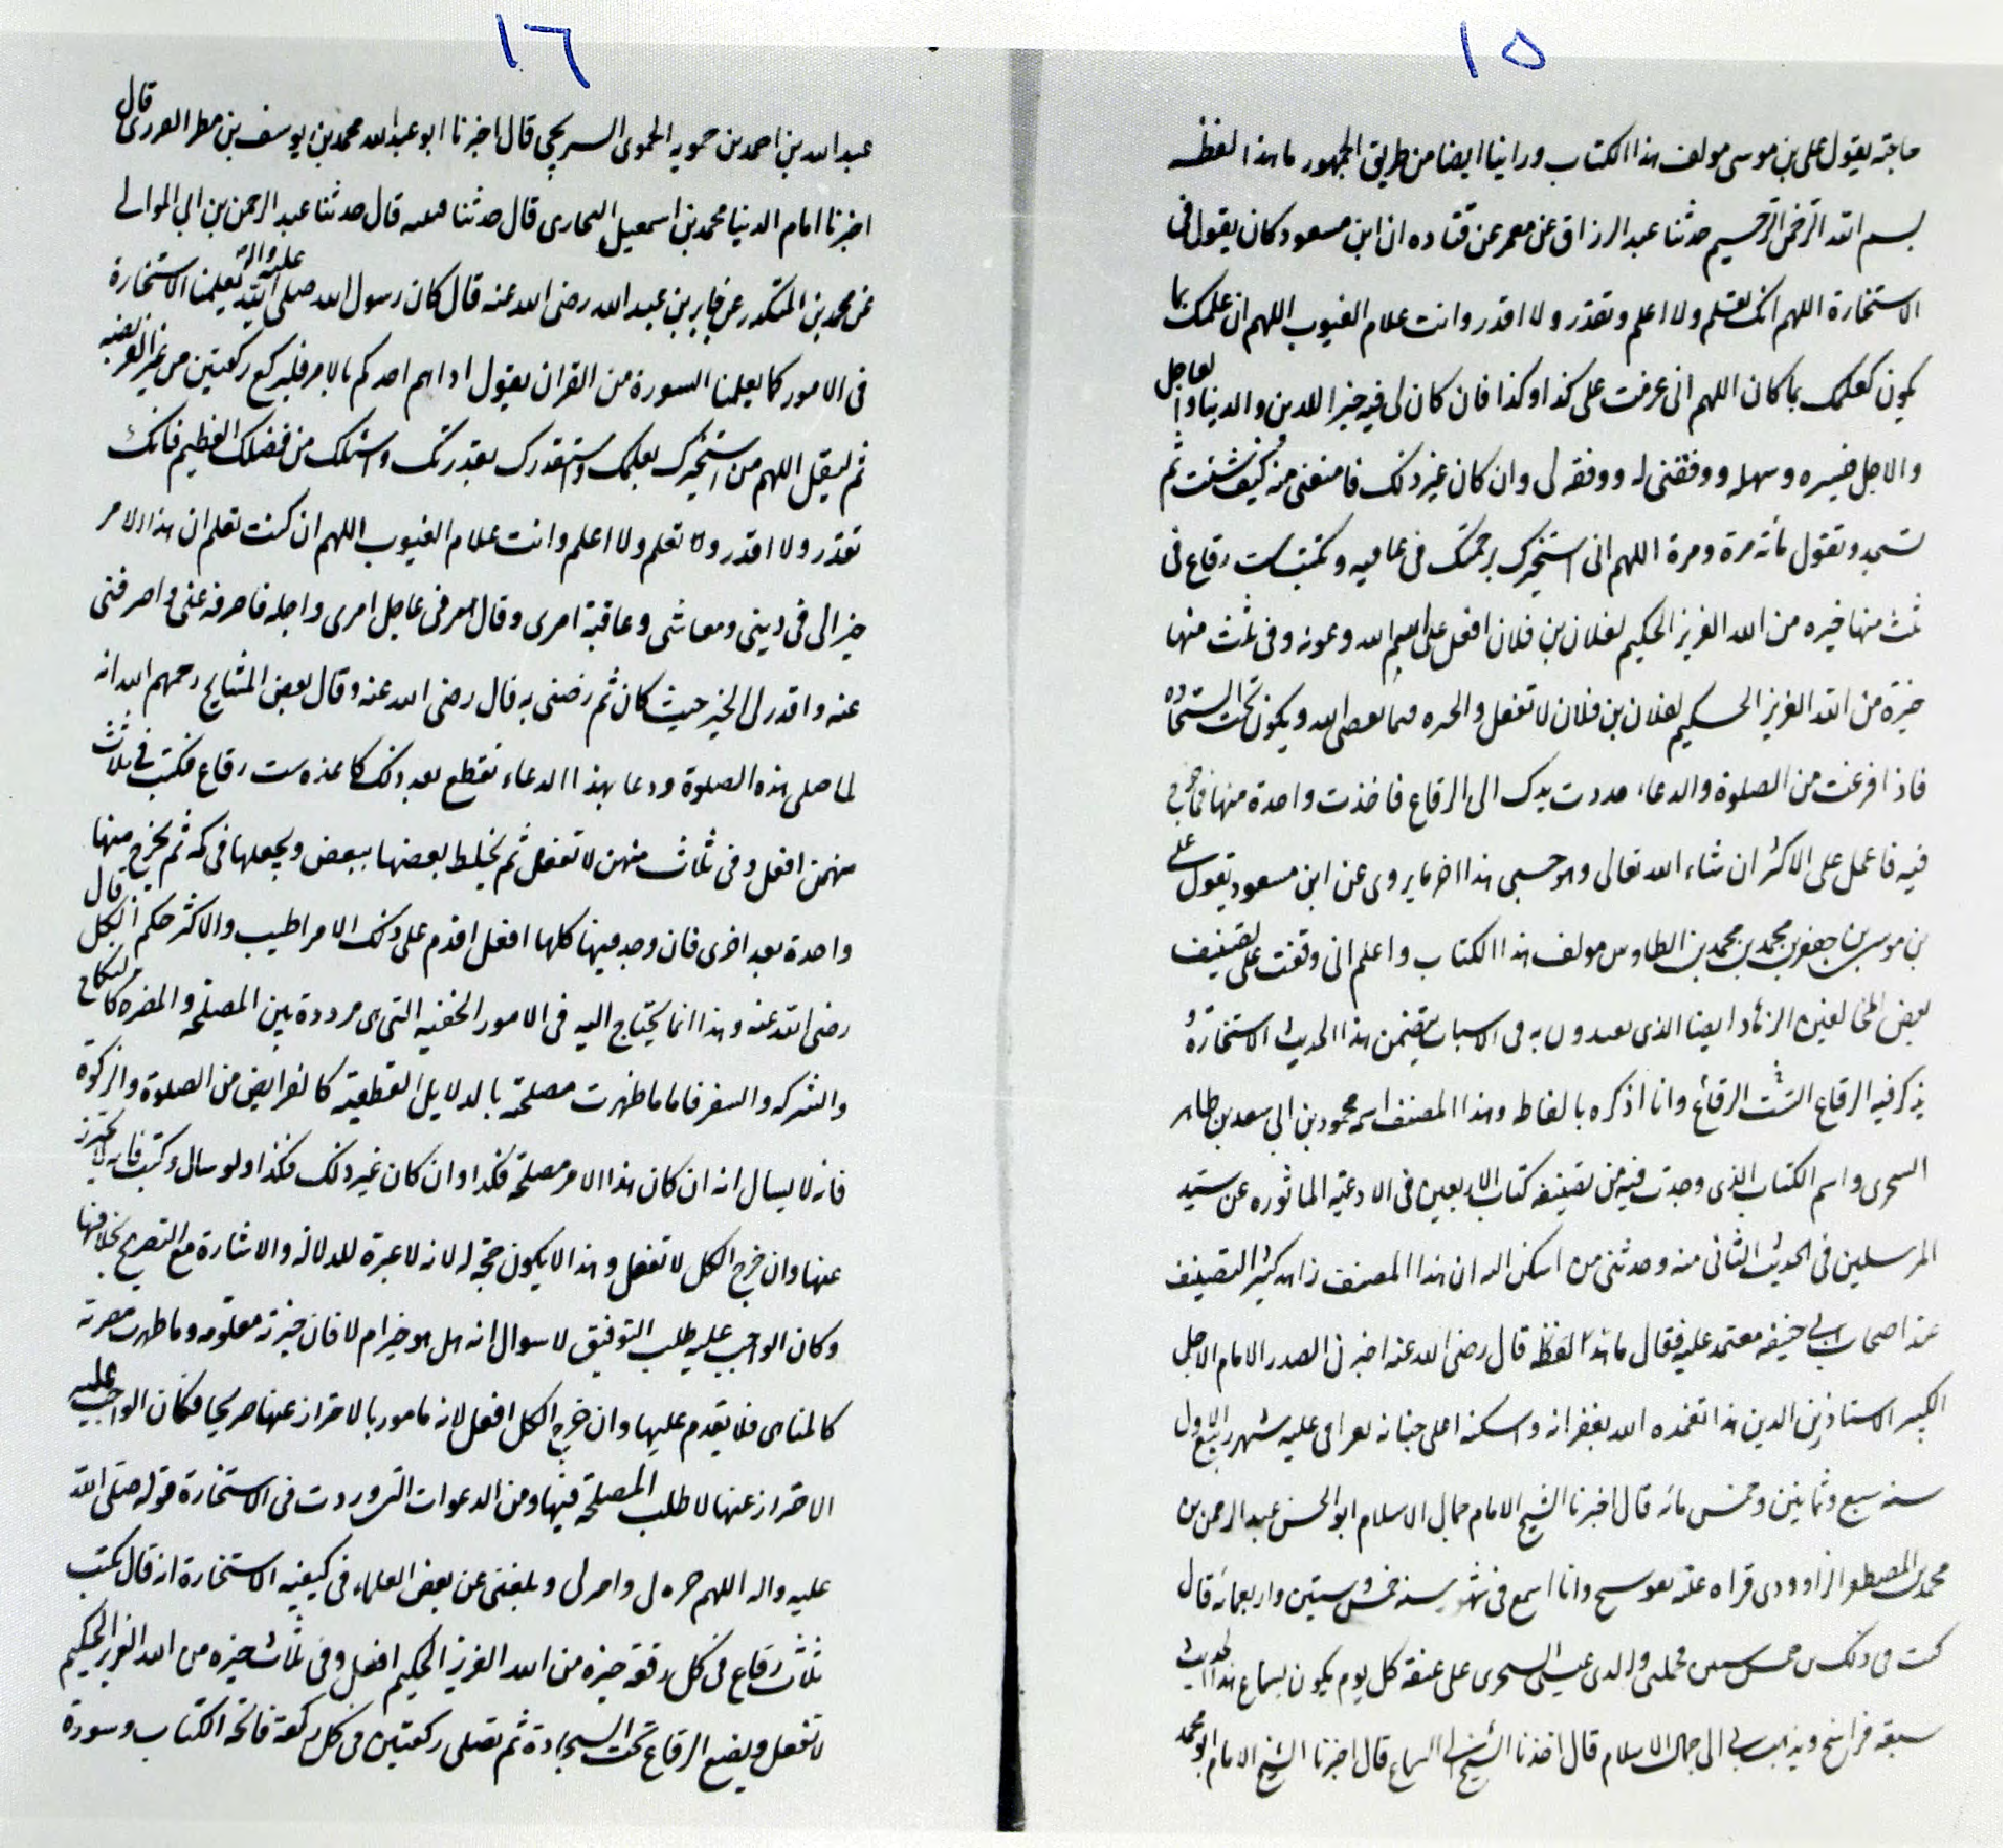 ١٥
حاجته يقول على بن موسى مولف هذا الكتاب وراينا ايضا من طريق الجمهور ما هذا لفظه
بسم الله الرحمن الرحيم حدثنا عبد الرزاق عن معمر عن قتاده ان ابن مسعود كان يقول فى
الاستخارة اللهم انك تعلم ولا اعلم وتقدر ولا اقدر وانت علام الغيوب اللهم ان علمك بما
يكون كعلمك بما كان اللهم انى عزمت على كذا وكذا فان كان لى فيه خير للدين والدنيا والعاجل
والاجل فيسره وسهله ووفقنى له ووفقه لى وان كان غير ذلك فامنعنى منه كيف شئت ثم
تسجد وتقول مائة مرة ومرة اللهم انى استخيرك برحمتك فى عافيه وتكتب ست رقاع فى
ثلث منها خيره من الله العزيز الحكيم لفلان بن فلان افعل على اسم الله وعونه وفى ثلث منها
خيرة من الله العزيز الحكيم لفلان بن فلان لا تفعل والخيره فيما يقضى الله ويكون تحت السجاده
فاذا فرغت من الصلوة والدعاء مددت يدك الى الرقاع فاخذت واحدة منها فما خرج
فيه فاعمل على الاكثر ان شاء الله تعالى وهو حسبى هذا اخر ما يروى عن ابن مسعود يقول على
بن موسى بن جعفر بن محمد بن محمد بن الطاوس مولف هذا الكتاب واعلم انى وقفت على تصنيف
بعض المخالفين الزهاد ايضا الذى يقتدون به فى الاسباب يتضمن هذا الحديث الاستخارة و
يذكر فيه الرقاع الست الرقاع وانا اذكره بالفاظه وهذا المصنف اسمه محمود بن ابى سعد بن طاهر
السحرى واسم الكتاب الذى وجدت فيه من تصنيفه كتاب الاربعين فى الادعية الماثوره عن سيد
المرسلين فى الحديث الثانى منه وحدثنى من اسكن اليه ان هذا المصنف زاهد كثير التصنيف
عند اصحاب ابى حنيفه معتمد عليه فقال ما هذا لفظه قال رضى الله عنه اخبرنى الصدر الامام الاجل
الكبير الاستاد زين الدين هذا تغمده الله بغفرانه واسكنه اعلى جنانه بقراءتى عليه شهر ربيع الاول
سنه سبع وثمانين وخمس مائه قال اخبرنا الشيخ الامام جمال الاسلام ابو الحسن عبد الرحمن بن
محمد بن المظفر الداوودى قراه عليه ببوسنج وانا اسمع فى شهور سنه خمس وستين واربعمائه قال
كنت فى ذلك بن خمس سنين فحملنى والدى عيسى السحرى على عنقه كل يوم يكون لسماع هذا الحديث
سبعة فراسخ ويذهب بى الى جمال الاسلام قال اخذنا الشيخ السماع قال اخبرنا الشيخ الامام ابو محمد
١٦
عبد الله بن احمد بن حمويه الحموى السرخسى قال اخبرنا ابو عبد الله محمد بن يوسف بن مطر الفربرى قال
اخبرنا امام الدنيا محمد بن اسمعيل البخارى قال حدثنا قتيبه قال حدثنا عبد الرحمن بن ابى الموالى
عن محمد بن المنكدر عن جابر بن عبد الله رضى الله عنه قال كان رسول الله صلى الله عليه واله يعلمنا الاستخارة
فى الامور كما يعلمنا السورة من القران يقول اذا هم احدكم بالامر فليركع ركعتين من غير الفريضه
ثم ليقل اللهم من استخيرك بعلمك واستقدرك بقدرتك واسئلك من فضلك العظيم فانك
تقدر ولا اقدر ولا تعلم ولا اعلم وانت علام الغيوب اللهم ان كنت تعلم ان هذا الامر
خير الى فى دينى ومعاشى وعاقبة امرى وقال امر فى عاجل امرى واجله فاصرفه عنى واصرفنى
عنه واقدر لى الخير حيث كان ثم رضنى به قال رضى الله عنه وقال بعض المشايخ رحمهم الله انه
لما صلى هذه الصلوة ودعا بهذا الدعاء يقطع بعد ذلك كاغذه ست رقاع فكتب فى ثلاث
منهن افعل وفى ثلاث منهن لا تفعل ثم يخلط بعضها ببعض ويجعلها فى كمه ثم يخرج منها
واحدة بعد اخرى فان وجد فيها كلها افعل اقدم على ذلك الامر اطيب والاكثر حكم الكل قال
رضى الله عنه وهذا انما يحتاج اليه فى الامور الخفيه التى هى مرددة بين المصلحه والمضره كالنكاح
والشركه والسفر فاما ما ظهرت مصلحته بالدلايل القطعية كالفرايض من الصلوة والزكوة
فانه لا يسال انه ان كان هذا الامر مصلحة فكذا وان كان غير ذلك فكذا ولو سال وكتب فانه لا تحيز
عنها وان خرج الكل لا تفعل وهذا لا يكون حجه له لانه لا عبرة للدلاله والاشارة مع التصريح بخلافها
وكان الواجب عليه طلب التوفيق لا سوال انه هل هو خير ام لا فان خيرته معلومه وما ظهرت مضرته
كالمناهى فلا يقدم عليها وان خرج الكل افعل لانه مامور بالاحتراز عنها صريحا فكان الواجب عليه
الاحتراز عنها لا طلب المصلحة فيها ومن الدعوات التى وردت فى الاستخارة قوله صلى الله
عليه واله اللهم خره لى واخر لى وبلغنى عن بعض العلماء فى كيفيه الاستخارة انه قال يكتب
ثلث رقاع فى كل رقعة خيرة من الله العزيز الحكيم افعل وفى ثلاث خيره من الله العزيز الحكيم
لا تفعل ويضع الرقاع تحت السجادة ثم تصلى ركعتين فى كل ركعة فاتحة الكتاب وسورة